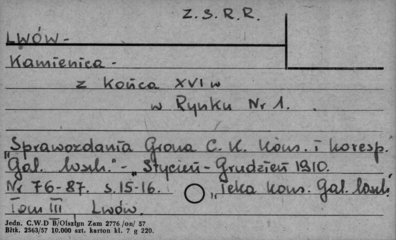 Z.S.R.R.
LWÓW-
Kamienica -
z końca XVI w
w Rynku Nr 1.
„Sprawozdania Grona C. K. Kons. i koresp.
Gal. wsch."-„Styczeń-Grudzień 1910.
Nr 76-87. s.15-16. „Teka Kons. Gal. wsch."
Tom III Lwów
Jedn. C.W.D B/Olsztyn Zam 2776 /on/ 57
Bltk. 2563/57 10.000 szt. karton kl. 7 g 220.